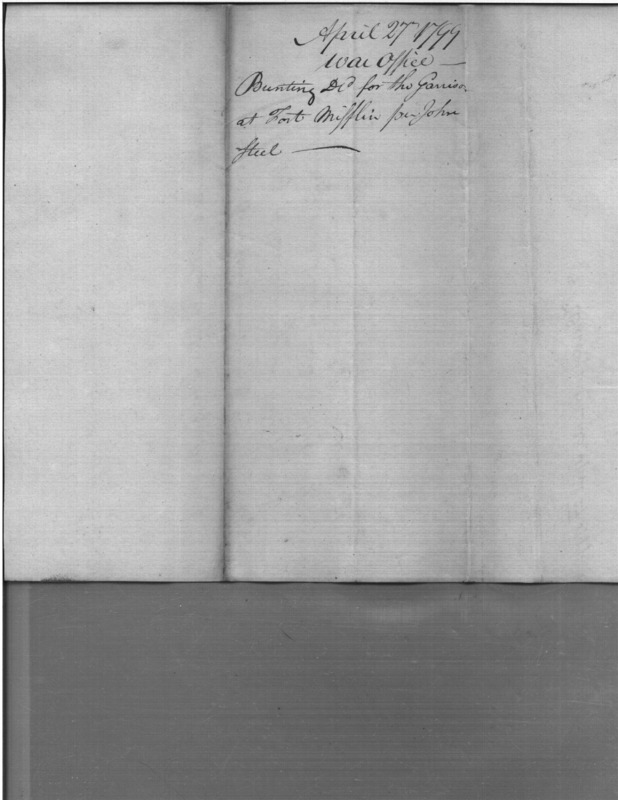 April 27 1799
War Office —
Bunting Dd for the Garrison
at Fort Mifflin per John
Steel —